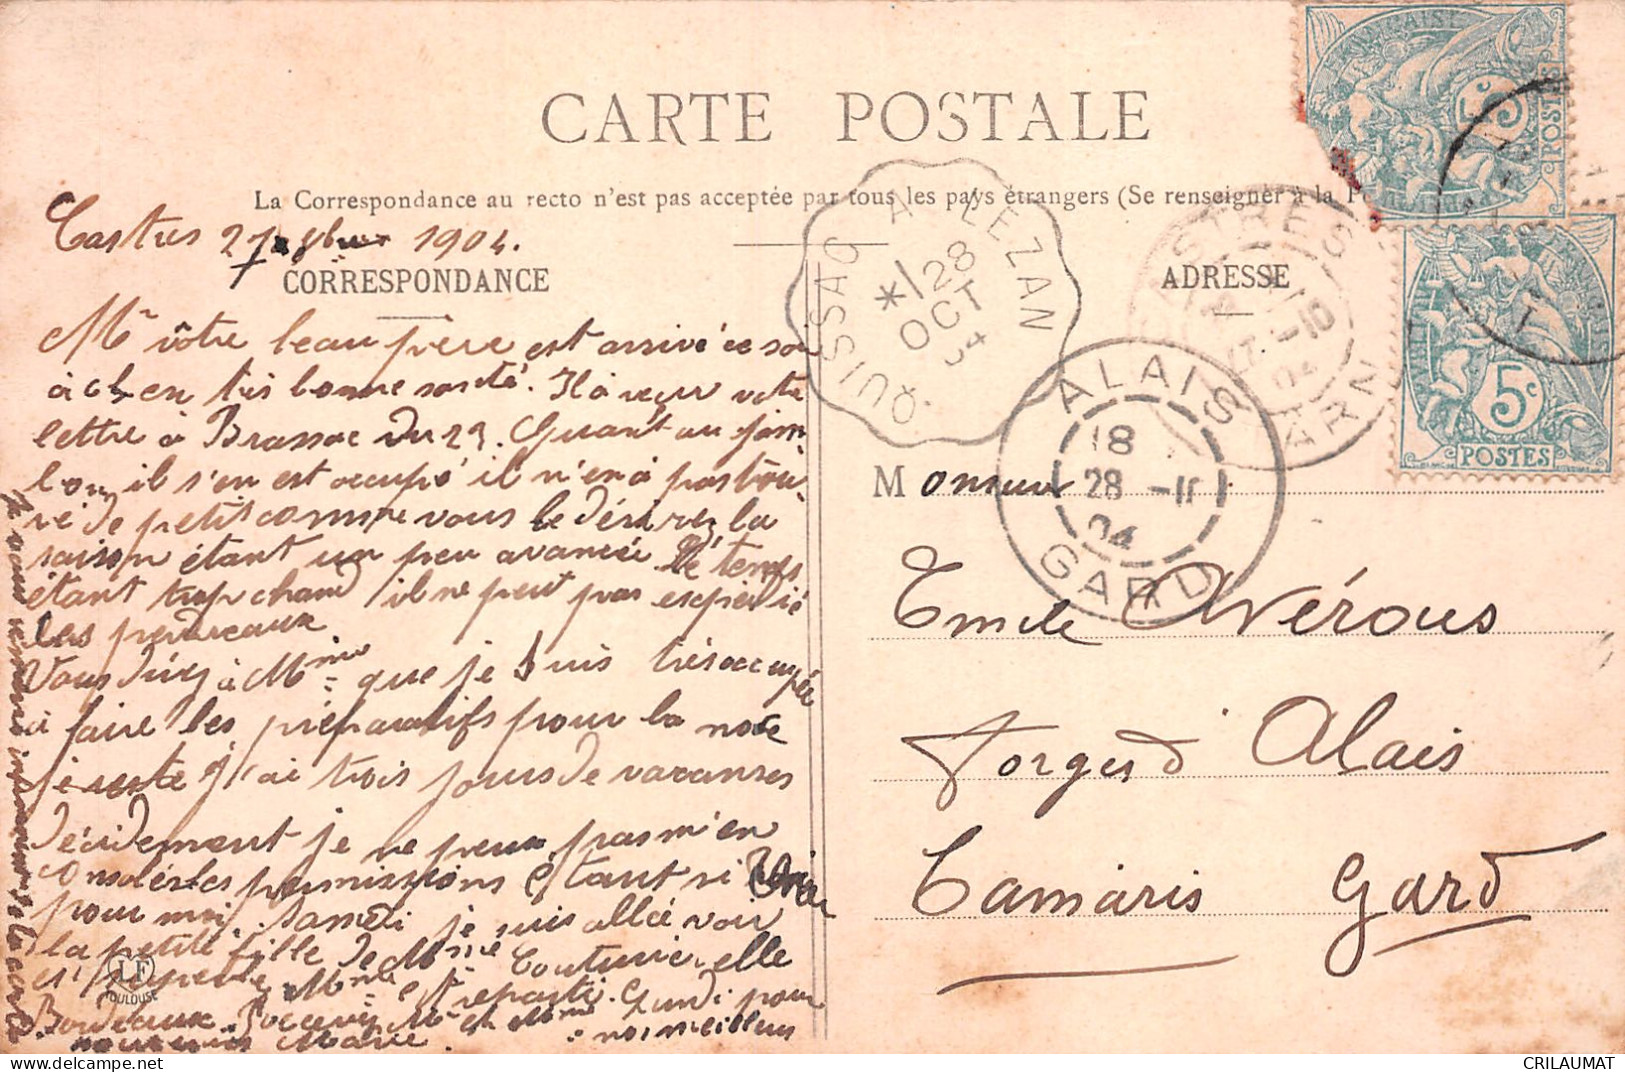 CARTE POSTALE
La Correspondance au recto n'est pas acceptée par tous les pays étrangers (Se renseigner à la
Castres 27 8bre 1904.
CORRESPONDANCE
ADRESSE
Mr vôtre beau père est arrivé ce soir
à en très bonne santé. Il a reçu votre
lettre à Brassac du 23. Quant au jam-
bon, il s'en est occupé il n'en à pas trou-
vé de petit comme vous le désirez la
saison étant un peu avancée. Le temps
étant trop chaud il ne peut pas expédié
les perdreaux
Vous direz à Mme que je suis très occupée
à faire les préparatifs pour la noce
je reste j'ai trois jours de vacanses
décidement je ne peux pas m'en
les permissions étant si
pour moi. Samedi je suis allée voir
la petite fille de Mme
Mme Couturier, elle
Bordeaux. Recevez Mr et Mme
meilleurs
Marie
Je vous remercie infiniment de la carte
LF
TOULOUSE
QUISSAC A LEZAN
28
OCT
04
CASTRES
27 -10
04
TARN
ALAIS
18
28 -11
04
GARD
5c
POSTES
5c
POSTES
Monsieur
Emile Avérous
Forges d'Alais
Tamaris Gard
CRILAUMAT